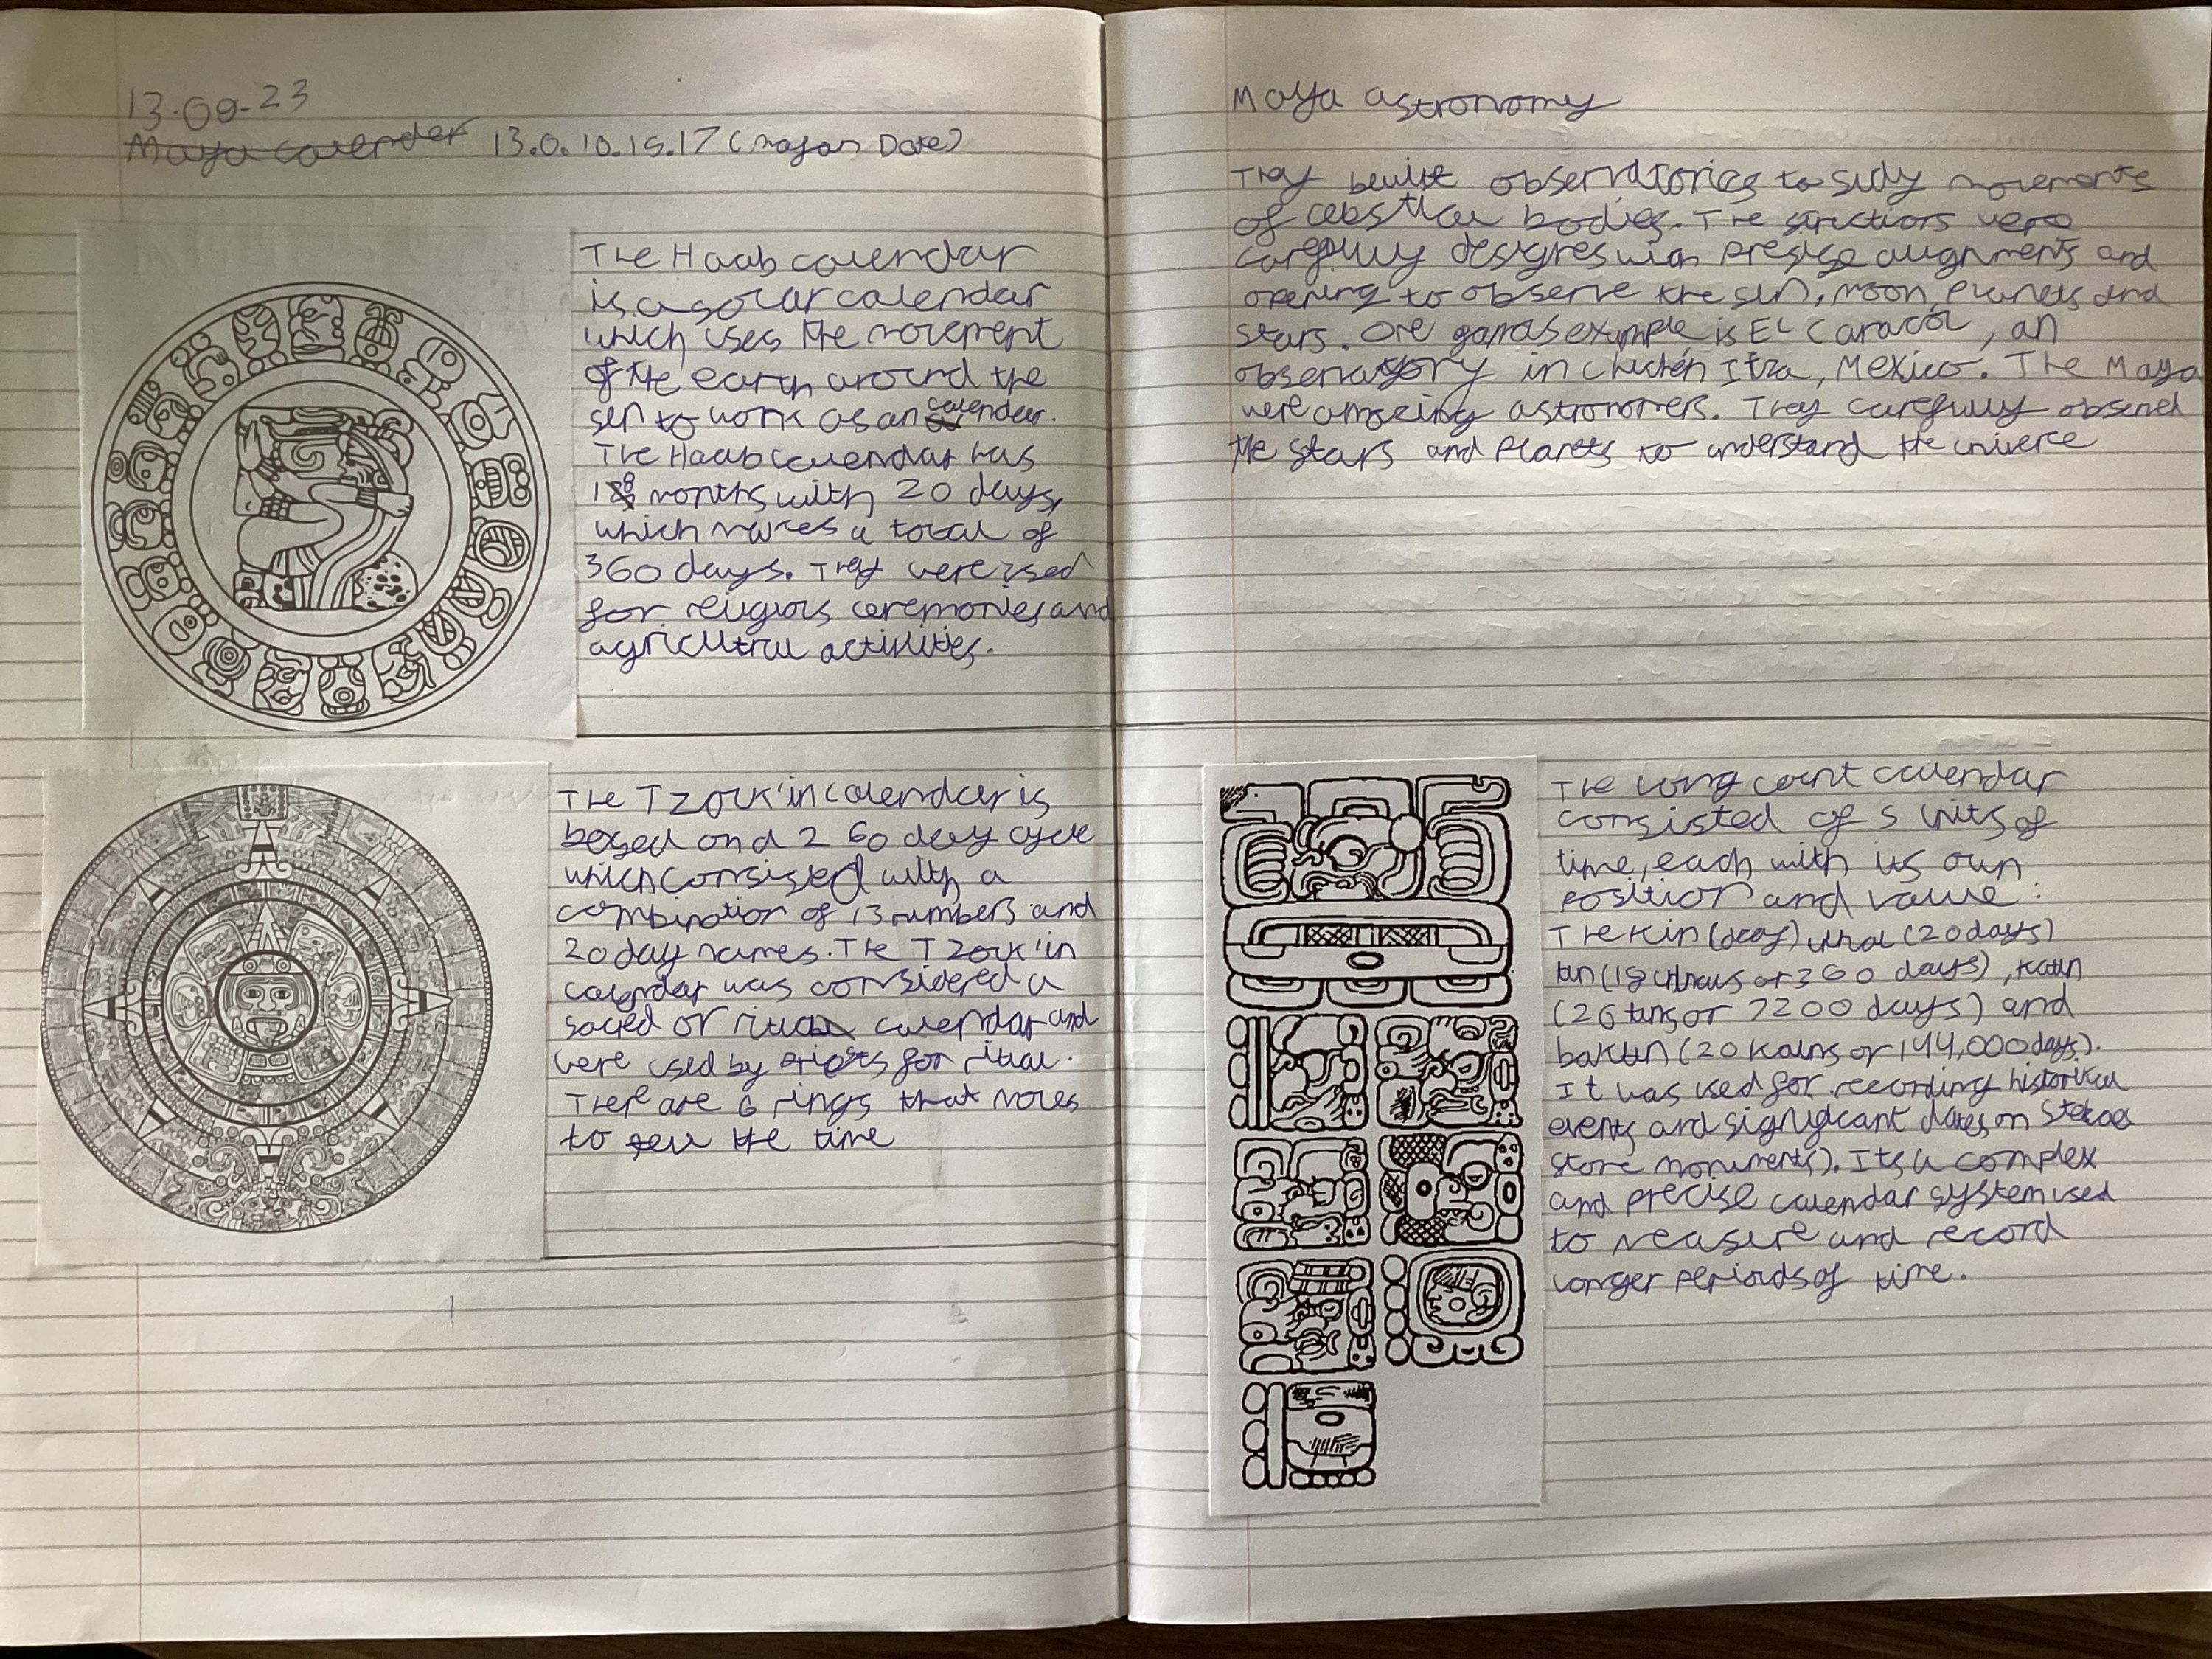 13-09-23
Maya calender 13.0.10.15.17 (mayan Date)
The Haab calendar
is a solar calendar
which uses the movement
of the earth around the
sun to work as an calendar.
The Haab calendar has
18 months with 20 days,
which makes a total of
360 days. They were used
for religious ceremonies and
agricultral activities.
The Tzolk'in calendar is
based on a 260 day cycle
which consisted with a
combination of 13 numbers and
20 day names. The Tzolk'in
calendar was considered a
sacred or ritual calendar and
were used by priests for ritual.
There are 6 rings that moves
to tell the time
Maya astronomy
They built observatories to study movements
of celestial bodies. The structiors were
carefully designes with presise alignments and
opening to observe the sun, moon, planets and
stars. One famous example is El Caracol, an
observatory in Chichén Itza, Mexico. The Maya
were amazing astronomers. They carefully observed
the stars and planets to understand the univere
The long count calendar
consisted of 5 units of
time, each with its own
position and value:
The Kin (day) uinal (20 days)
tun (18 uinals or 360 days), katun
(20 tuns or 7200 days) and
baktun (20 katuns or 144,000 days).
It was used for recording historical
events and significant dates on Stelae
stone monuments). Its a complex
and precise calendar system used
to measure and record
longer periods of time.